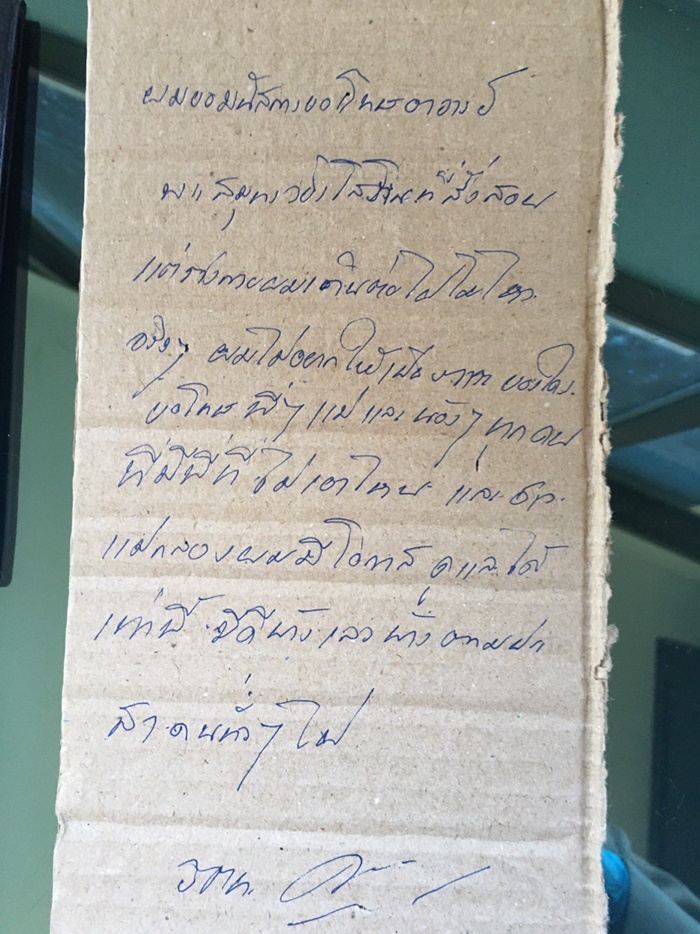 ผมขอนมัสการขอโทษอาจารย์
ที่สั่งสอน
แต่ร่างกายผมเดินต่อไปไม่ไหว
จริงๆ ผมไม่อยากให้เป็นภาระ ของใคร
ขอโทษ พี่ๆ แม่ และน้องๆ ทุกคน
ที่มีพี่ที่ไม่เอาไหน และ รพ.
แม่กลองผมมีโอกาส ดูแลได้
เท่านี้ มีดีบ้าง เลวบ้าง ตามประ
สา คนทั่วๆ ไป